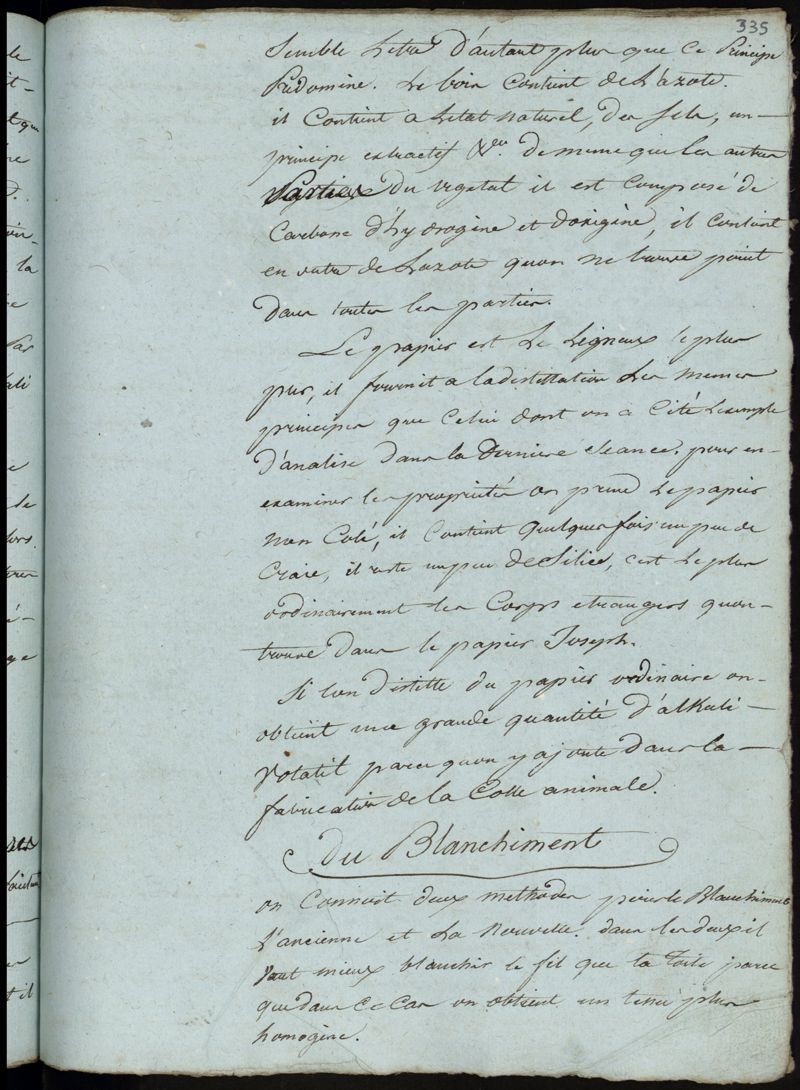 335
semble letre d'autant plus que ce Principe
Predomine. Le bois Contient de L'azote.
il Contient a Letat naturel, des sels, un
principe extractif &ca. de meme que les autres
Parties du vegetal il est Composé de
Carbone d'hydrogène et doxigène, il Contient
en outre de Lazote quon ne trouve point
dans toutes les parties.
Le papier est Le Ligneux le plus
pur, il fournit a la distillation Les memes
principes que Celui dont on a Cité Lexemple
D'analise dans la Derniere seance. pour en
examiner les proprietés on prend Le papier
non Colé, il Contient quelques fois un peu de
Craie, il reste un peu de Silice, c'est Le plus
ordinairement les Corps etrangers quon
trouve dans le papier Joseph.
Si lon distille du papier ordinaire on
obtient une grande quantité d'alkali
Volatil parce quon y ajoute dans la
fabrication de la Colle animale.
Du Blanchiment
on Connoit deux methodes pour le Blanchiment
L'ancienne et La Nouvelle. dans les deux il
Vaut mieux blanchir le fil que la Toile parce
que dans ce Cas on obtient un tissu plus
homogène.